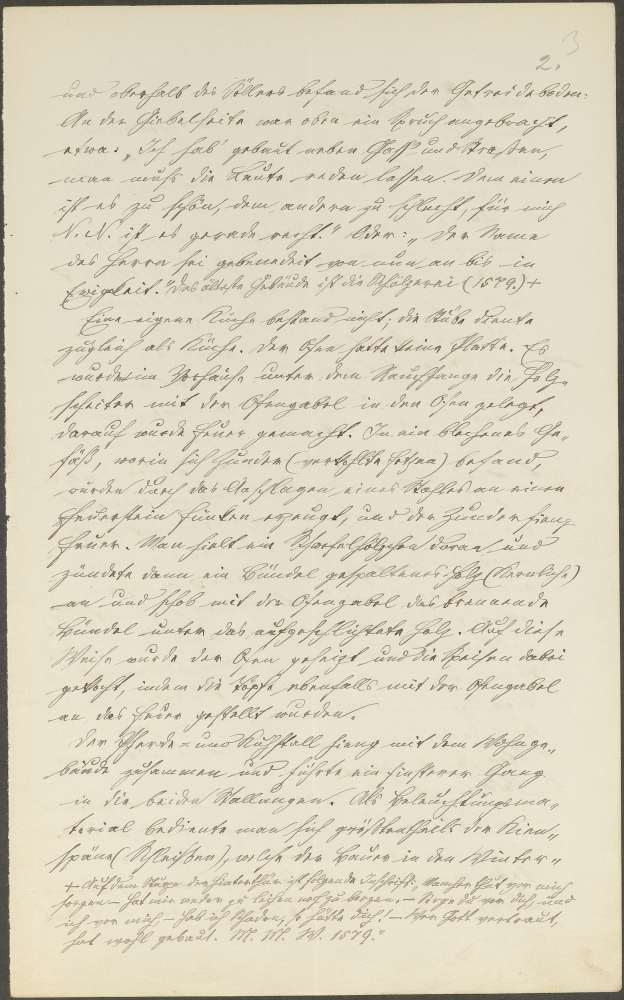 3
2.
und oberhalb des Söllers befand sich der Getreideboden.
An der Giebelseite war oben ein Spruch angebracht,
etwa: „Ich hab' gebaut neben Gass' und Straßen,
man muß die Leute reden lassen. Dem einen
ist es zu schön, dem andern zu schlecht, für mich
N. N. ist es gerade recht." Oder: „Der Name
des Herrn sei gebenedeit von nun an bis in
Ewigkeit." Das älteste Gebäude ist die Scholzerei (1579.) +
Eine eigene Küche bestand nicht; die Stube diente
zugleich als Küche. Der Ofen hatte keine Platte. Es
wurden im Vorhäus'l unter dem Rauchfange die Holz„
scheiter mit der Ofengabel in den Ofen gelegt,
darauf wurde Feuer gemacht. In ein blechenes Ge„
fäß, worin sich Zunder (verkohlte Fetzen) befand,
wurden durch das Aufschlagen eines Stahles an einen
Feuerstein Funken erzeugt, und der Zunder fieng
Feuer. Man hielt ein Schwefelhölzchen daran und
zündete dann ein Bündel gespaltenes Holz
an und schob mit der Ofengabel das brennende
Bündel unter das aufgeschlichtete Holz. Auf diese
Weise wurde der Ofen geheizt und die Speisen dabei
gekocht, indem die Töpfe ebenfalls mit der Ofengabel
an das Feuer gestellt wurden.
Der Pferde- und Kuhstall hieng mit dem Wohnge„
bäude zusammen und führte ein finsterer Gang
in die beiden Stallungen. Als Beleuchtungsma„
terial bediente man sich größtentheils der Kien„
späne (Schleißen), welche der Bauer in den Winter„
+ Auf dem der Hinterthür ist folgende Inschrift: „Mancher thut vor mich
sorgen – hat mir weder zu leihen noch zu borgen. – Sorge du vor dich und
ich vor mich – hab ich Schaden, so hütte dich! – Wer Gott vertraut,
hat wohl gebaut. M. M. W. 1579."